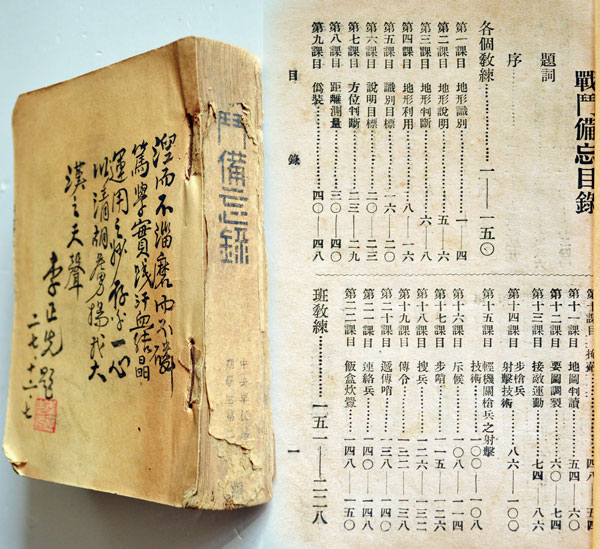 鬥備忘錄
湼而不淄磨而不磷
篤學實踐汗血結晶
運用之妙存乎一心
以清胡虜揚我大
漢之天聲
李正先題
二七·十二·七
戰鬥備忘目錄
題詞
序
各個敎練⋯⋯一——一五〇
第一課目 地形識別⋯⋯一——四
第二課目 地形說明⋯⋯五——六
第三課目 地形判斷⋯⋯六——八
第四課目 地形利用⋯⋯八——一六
第五課目 識別目標⋯⋯一六——二〇
第六課目 說明目標⋯⋯二〇——二三
第七課目 方位判斷⋯⋯二三——二九
第八課目 距離測量⋯⋯三〇——四〇
第九課目 偽裝⋯⋯四〇——四八
第十課目 四八——五四
第十一課目 地圖判讀⋯⋯五四——六〇
第十二課目 要圖調製⋯⋯六〇——七四
第十三課目 接敵運動⋯⋯七四——八六
第十四課目 步槍兵之
射擊技術⋯⋯八六——一〇〇
第十五課目 輕機關槍兵之射擊
技術⋯⋯一〇〇——一〇八
第十六課目 斥候⋯⋯一〇八——一一四
第十七課目 步哨⋯⋯一一五——一二六
第十八課目 搜兵⋯⋯一二六——一三二
第十九課目 傳令⋯⋯一三二——一三八
第二十課目 遞傳哨⋯⋯一三八——一四〇
第二一課目 連絡兵⋯⋯一四〇——一四八
第二二課目 飯盒炊爨⋯⋯一四八——一五〇
班敎練⋯⋯一五一——二二八
目錄 一